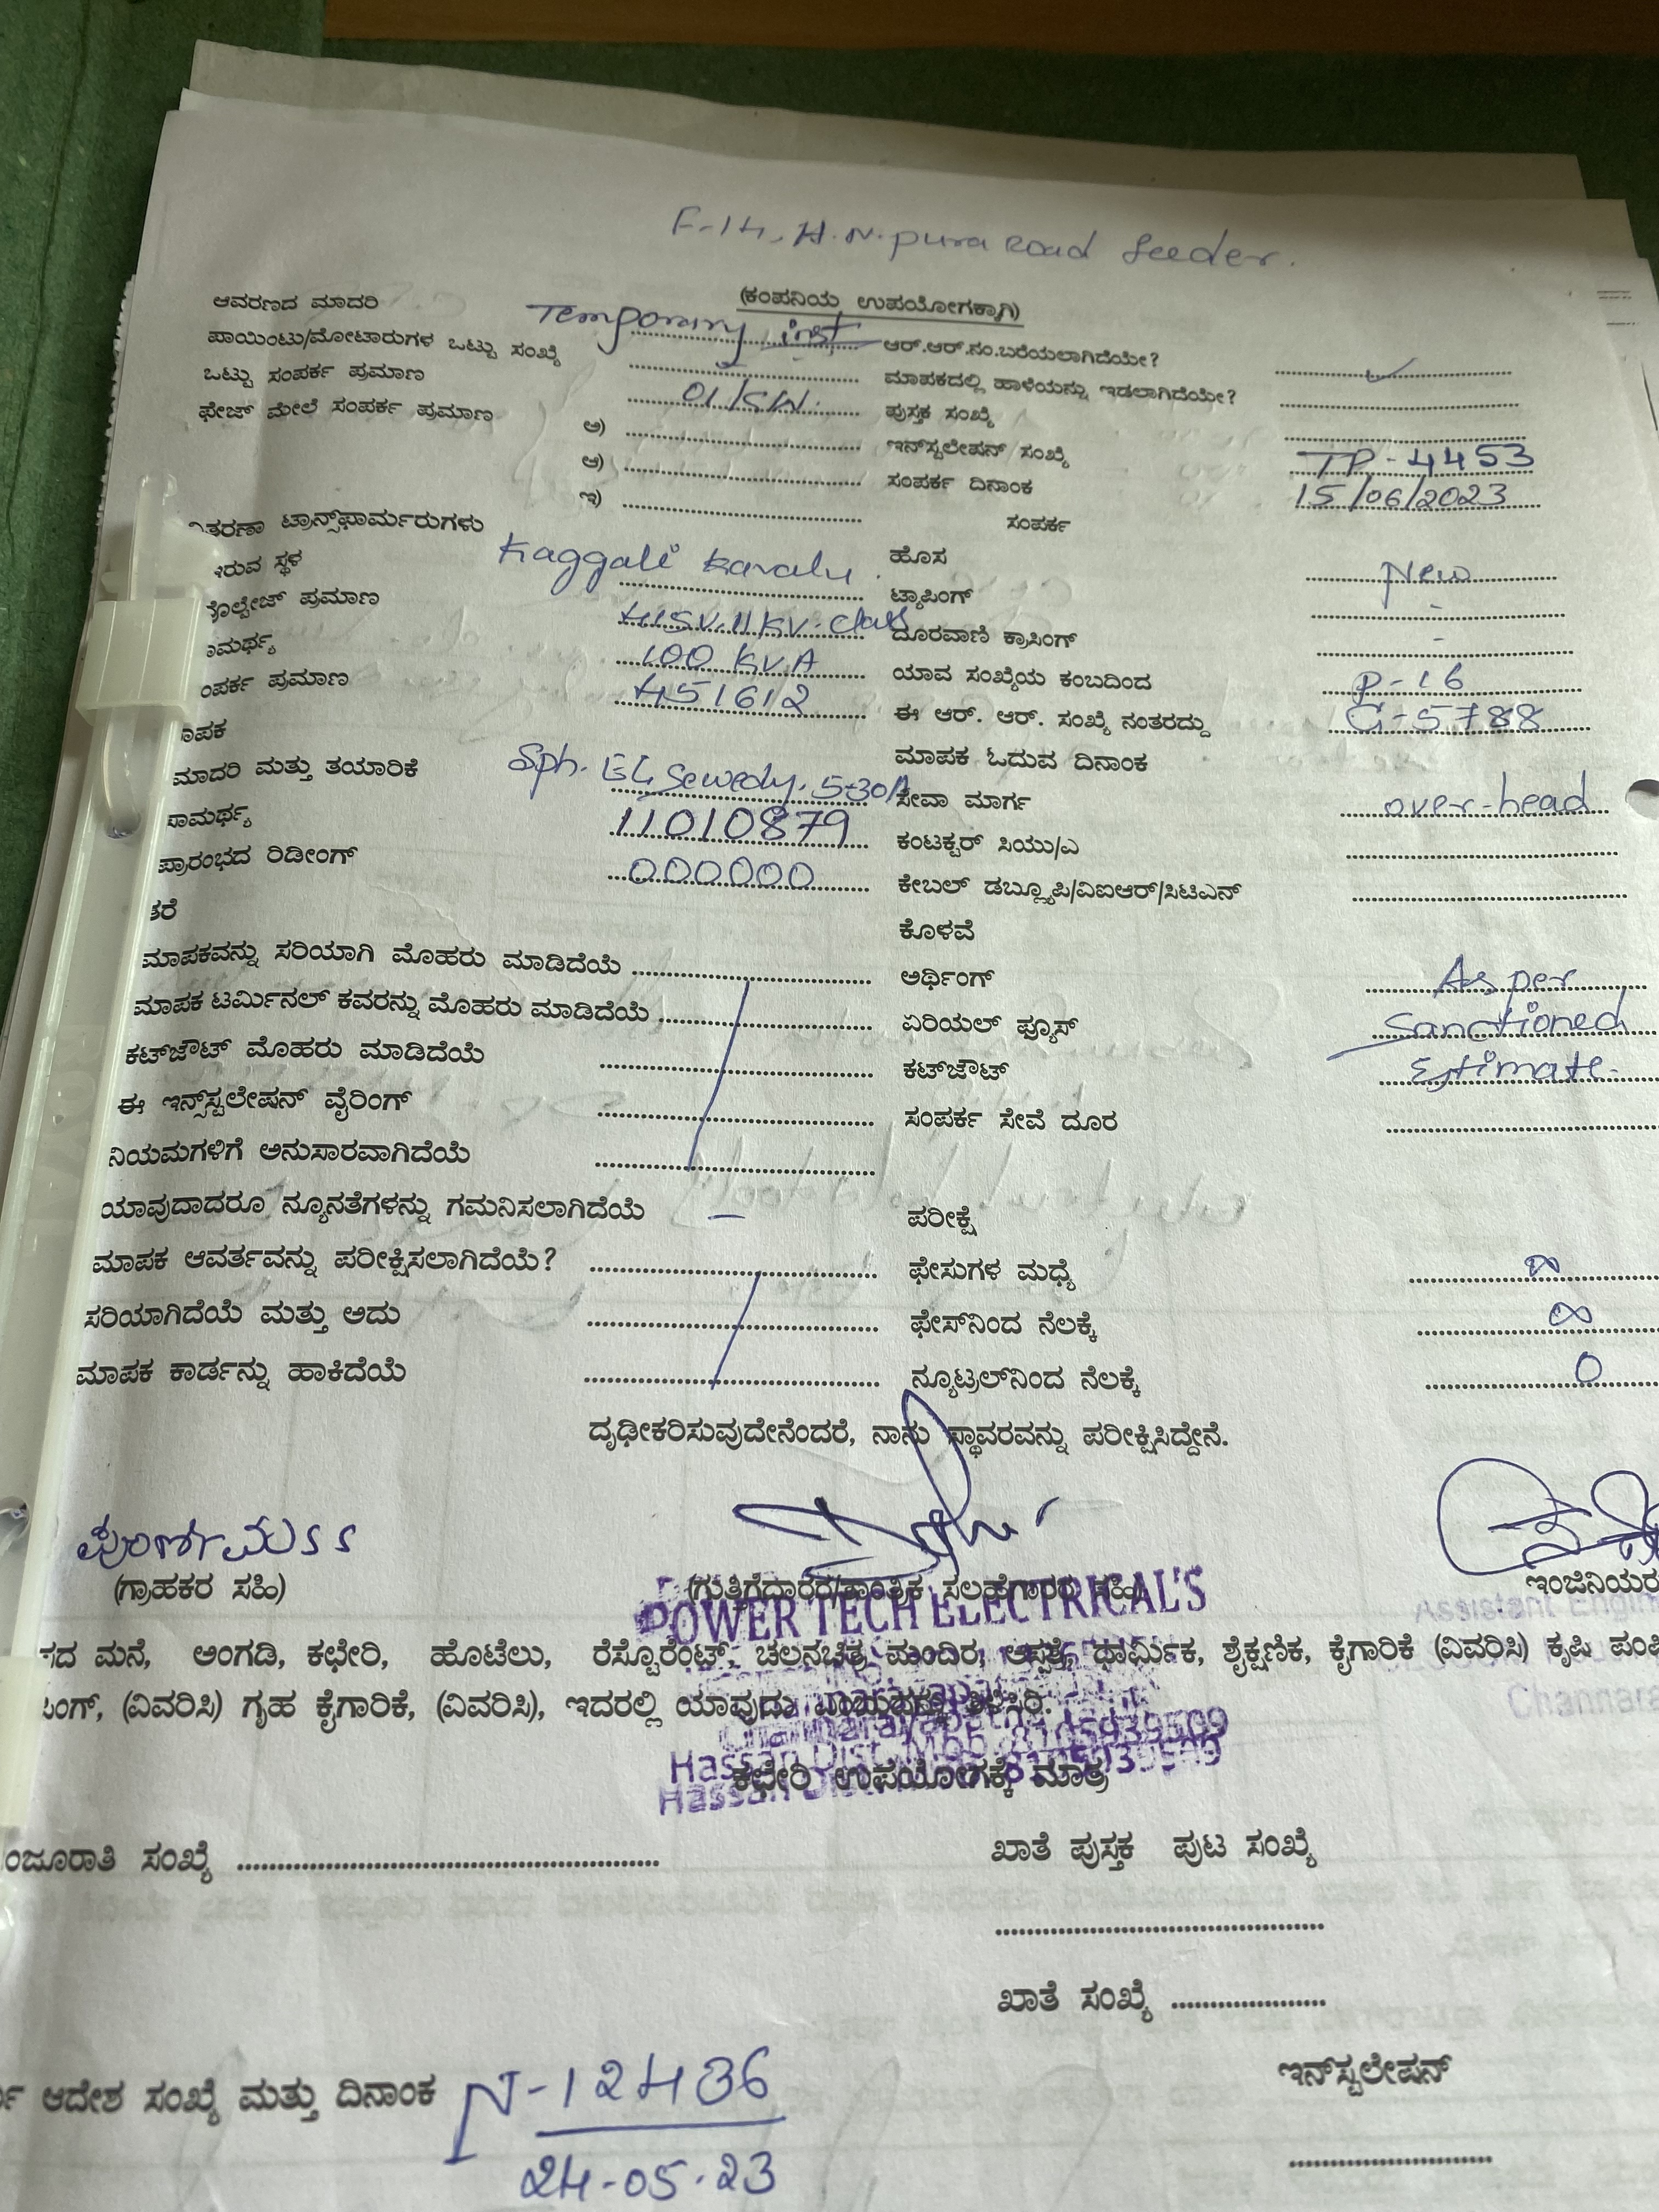 F-14, H.N.pura Road feeder.
(ಕಂಪನಿಯ ಉಪಯೋಗಕ್ಕಾಗಿ)
ಆವರಣದ ಮಾದರಿ Temporary inst ಆರ್.ಆರ್.ನಂ.ಬರೆಯಲಾಗಿದೆಯೇ? ✓
ಪಾಯಿಂಟು/ಮೋಟಾರುಗಳ ಒಟ್ಟು ಸಂಖ್ಯೆ ಮಾಪಕದಲ್ಲಿ ಹಾಳೆಯನ್ನು ಇಡಲಾಗಿದೆಯೇ?
ಒಟ್ಟು ಸಂಪರ್ಕ ಪ್ರಮಾಣ 01 KW. ಪುಸ್ತಕ ಸಂಖ್ಯೆ
ಫೇಜ್ ಮೇಲೆ ಸಂಪರ್ಕ ಪ್ರಮಾಣ ಅ) ಇನ್‌ಸ್ಟಲೇಷನ್ ಸಂಖ್ಯೆ TP-4453
ಆ) ಸಂಪರ್ಕ ದಿನಾಂಕ 15/06/2023
ಇ) ಸಂಪರ್ಕ
ತರಣಾ ಟ್ರಾನ್ಸ್‌ಫಾರ್ಮರುಗಳು
ಇರುವ ಸ್ಥಳ Kaggali Kavalu. ಹೊಸ New
ವೋಲ್ಟೇಜ್ ಪ್ರಮಾಣ 415V.11KV.class ಟ್ಯಾಪಿಂಗ್ -
ಾಮರ್ಥ್ಯ 100 KVA ದೂರವಾಣಿ ಕ್ರಾಸಿಂಗ್ -
ಂಪರ್ಕ ಪ್ರಮಾಣ 451612 ಯಾವ ಸಂಖ್ಯೆಯ ಕಂಬದಿಂದ P-16
ಾಪಕ ಈ ಆರ್. ಆರ್. ಸಂಖ್ಯೆ ನಂತರದ್ದು G-5788
ಮಾದರಿ ಮತ್ತು ತಯಾರಿಕೆ Sph. EL Sewedy. 5-30A ಮಾಪಕ ಓದುವ ದಿನಾಂಕ
ಸಾಮರ್ಥ್ಯ 11010879 ಸೇವಾ ಮಾರ್ಗ over-head
ಪ್ರಾರಂಭದ ರಿಡೀಂಗ್ 000000 ಕಂಟಕ್ಟರ್ ಸಿಯು/ಎ
ತರೆ ಕೇಬಲ್ ಡಬ್ಲ್ಯೂಪಿ/ವಿಐಆರ್/ಸಿಟಿಎನ್
ಕೊಳವೆ
ಮಾಪಕವನ್ನು ಸರಿಯಾಗಿ ಮೊಹರು ಮಾಡಿದೆಯೆ ಅರ್ಥಿಂಗ್ As per
ಮಾಪಕ ಟರ್ಮಿನಲ್ ಕವರನ್ನು ಮೊಹರು ಮಾಡಿದೆಯೆ ಏರಿಯಲ್ ಫ್ಯೂಸ್ Sanctioned
ಕಟ್‌ಔಟ್ ಮೊಹರು ಮಾಡಿದೆಯೆ ಕಟ್‌ಔಟ್ Estimate.
ಈ ಇನ್ಸ್‌ಸ್ಟಲೇಷನ್ ವೈರಿಂಗ್ ಸಂಪರ್ಕ ಸೇವೆ ದೂರ
ನಿಯಮಗಳಿಗೆ ಅನುಸಾರವಾಗಿದೆಯೆ
ಯಾವುದಾದರೂ ನ್ಯೂನತೆಗಳನ್ನು ಗಮನಿಸಲಾಗಿದೆಯೆ - ಪರೀಕ್ಷೆ
ಮಾಪಕ ಆವರ್ತವನ್ನು ಪರೀಕ್ಷಿಸಲಾಗಿದೆಯೆ? ಫೇಸುಗಳ ಮಧ್ಯೆ ∞
ಸರಿಯಾಗಿದೆಯೆ ಮತ್ತು ಅದು ಫೇಸ್‌ನಿಂದ ನೆಲಕ್ಕೆ ∞
ಮಾಪಕ ಕಾರ್ಡನ್ನು ಹಾಕಿದೆಯೆ ನ್ಯೂಟ್ರಲ್‌ನಿಂದ ನೆಲಕ್ಕೆ 0
ದೃಢೀಕರಿಸುವುದೇನೆಂದರೆ, ನಾನು ಸ್ಥಾವರವನ್ನು ಪರೀಕ್ಷಿಸಿದ್ದೇನೆ.
(ಗ್ರಾಹಕರ ಸಹಿ) (ಗುತ್ತಿಗೆದಾರರ/ತಾಂತ್ರಿಕ ಸಲಹೆಗಾರರ ಸಹಿ) ಇಂಜಿನಿಯರ
POWER TECH ELECTRICAL'S
Assistant Engin
ಸದ ಮನೆ, ಅಂಗಡಿ, ಕಛೇರಿ, ಹೊಟೆಲು, ರೆಸ್ಟೊರೆಂಟ್, ಚಲನಚಿತ್ರ ಮಂದಿರ, ಆಸ್ಪತ್ರೆ, ಧಾರ್ಮಿಕ, ಶೈಕ್ಷಣಿಕ, ಕೈಗಾರಿಕೆ (ವಿವರಿಸಿ) ಕೃಷಿ ಪಂಪಿ
ಪಿಂಗ್, (ವಿವರಿಸಿ) ಗೃಹ ಕೈಗಾರಿಕೆ, (ವಿವರಿಸಿ), ಇದರಲ್ಲಿ ಯಾವುದು ತಿಳಿಸಿರಿ.
Channara
Hassan Dist. Mob: 8105939509
ಕಛೇರಿ ಉಪಯೋಗಕ್ಕೆ ಮಾತ್ರ
ಂಜೂರಾತಿ ಸಂಖ್ಯೆ ಖಾತೆ ಪುಸ್ತಕ ಪುಟ ಸಂಖ್ಯೆ
ಖಾತೆ ಸಂಖ್ಯೆ
ಆದೇಶ ಸಂಖ್ಯೆ ಮತ್ತು ದಿನಾಂಕ N-12436 ಇನ್‌ಸ್ಟಲೇಷನ್
24-05-23